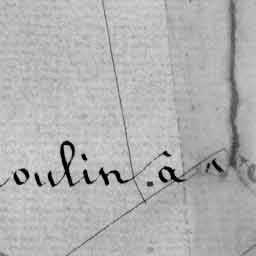 oulin. â